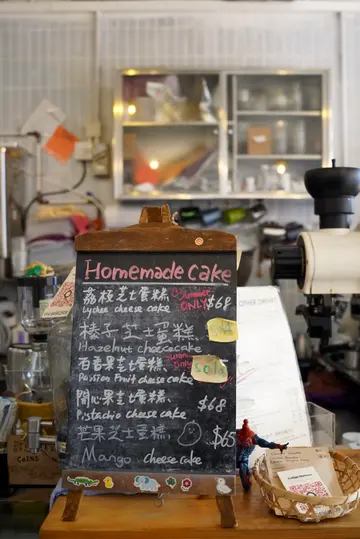 Homemade Cake
荔枝芝士蛋糕 Summer ONLY $68
Lychee cheese cake
榛子芝士蛋糕
Hazelnut cheesecake
百香果芝士蛋糕 Summer ONLY Sold
Passion Fruit cheese cake
開心果芝士蛋糕 $68
Pistachio cheese cake
芒果芝士蛋糕 $65
Mango cheese cake